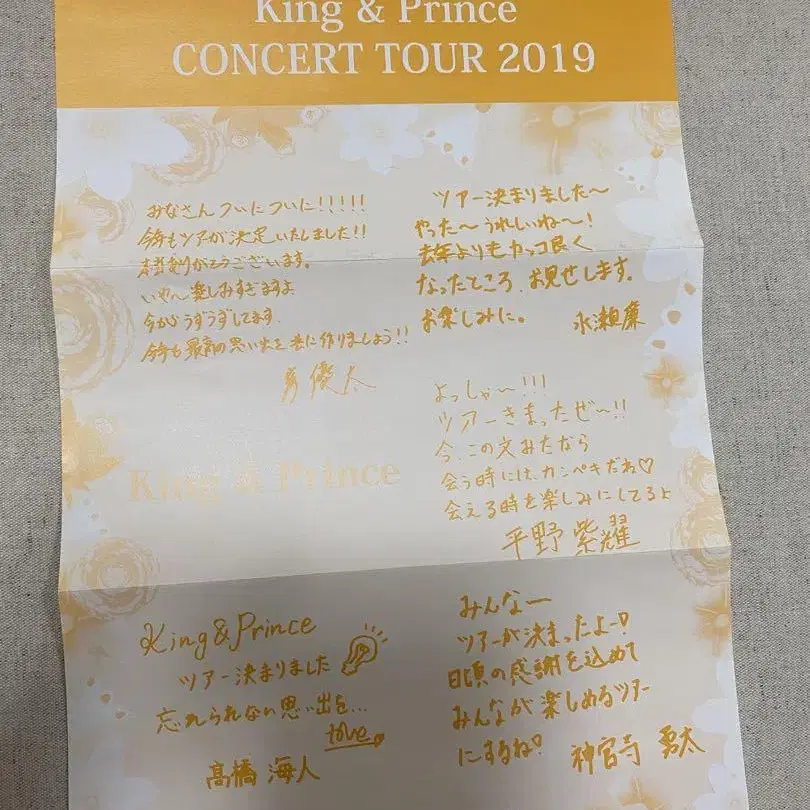 King & Prince
CONCERT TOUR 2019
みなさんついについに!!!!!
今年もツアーが決定いたしました!!
本当ありがとうございます。
いや〜楽しみすぎますよ
今からうずうずしてます.
今年も最高の思い出を共に作りましょう!!
岸優太
ツアー決まりました〜
やった〜うれしいね〜!
去年よりもカッコ良く
なったところ、お見せします。
お楽しみに。
永瀬廉
よっしゃ〜!!!
ツアーきまったぜ〜!!
今、この文みたなら
会う時には、カンペキだね♡
会える時を楽しみにしてるよ
平野紫耀
King & Prince
King & Prince
ツアー決まりました
忘れられない思い出を...
love
髙橋海人
みんなー
ツアーが決まったよー!
日頃の感謝を込めて
みんなが楽しめるツアー
にするね!
神宮寺勇太